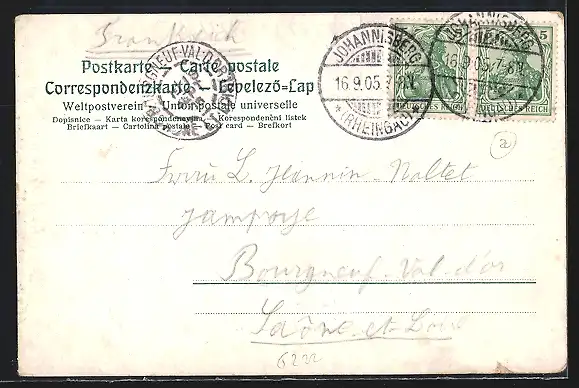 Frankreich
Postkarte — Carte postale
Correspondenzkarte — Levelező-Lap
Weltpostverein — Union postale universelle
Dopisnice — Karta korespondencyjna — Korespondenční lístek
Briefkaart — Cartolina postale — Post card — Brefkort
BOURGNEUF-VAL-D'OR
JOHANNISBERG
16.9.05.7-8N.
* (RHEINGAU)
DEUTSCHES REICH
JOHANNISBERG
16.9.05.7-8N.
5
DEUTSCHES REICH
a
Frau L. Jeannin-Noltet
Bourgneuf-Val d'or
Saône et Loire
6222